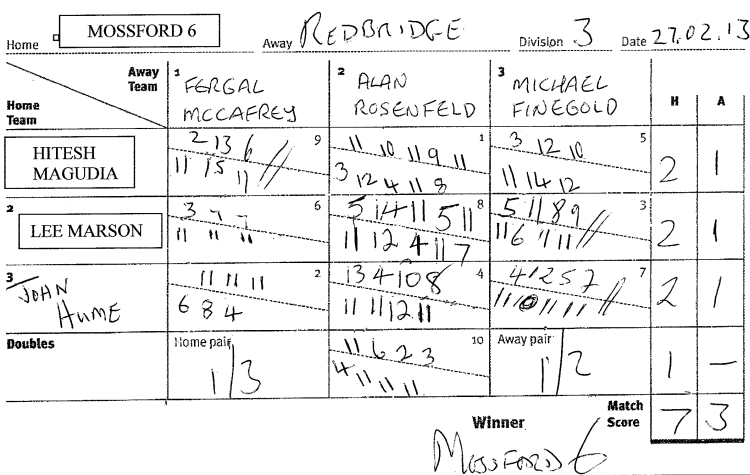 Home MOSSFORD 6 Away REDBRIDGE Division 3 Date 27.02.13
Away Team
Home Team
1 FERGAL MCCAFREY
2 ALAN ROSENFELD
3 MICHAEL FINEGOLD
H A
HITESH MAGUDIA
2 13 6 9
11 15 11
11 10 11 9 11 1
3 12 4 11 8
3 12 10 5
11 14 12
2 1
2 LEE MARSON
3 9 7 6
11 11 11
5 14 11 5 11 8
11 12 4 11 7
5 11 8 9 3
11 6 11 11
2 1
3 JOHN HUME
11 11 11 2
6 8 4
13 4 10 8 4
11 11 12 11
4 12 5 7 7
11 10 11 11
2 1
Doubles
Home pair
1/3
11 6 2 3 10
4 11 11 11
Away pair
1/2
1 –
Winner
MOSSFORD 6
Match Score 7 3